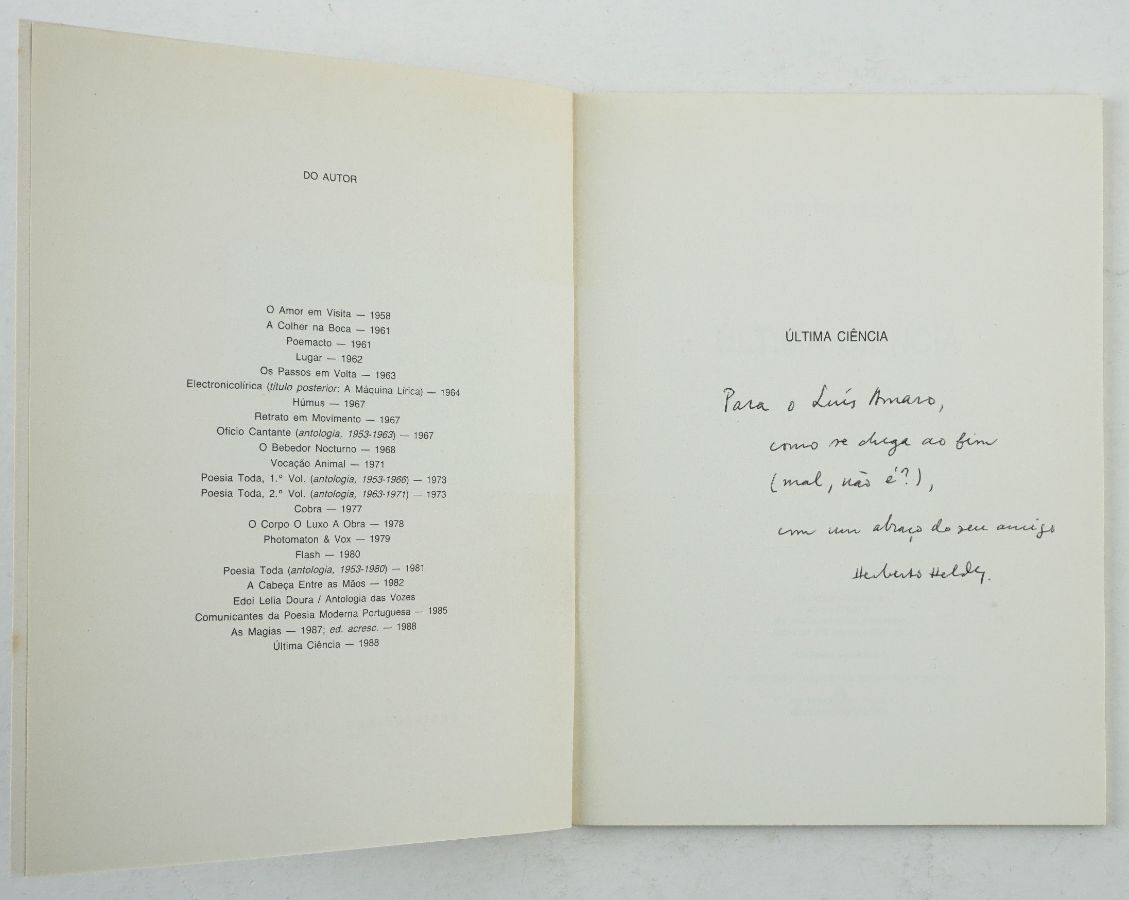 DO AUTOR
O Amor em Visita — 1958
A Colher na Boca — 1961
Poemacto — 1961
Lugar — 1962
Os Passos em Volta — 1963
Electronicolírica (título posterior: A Máquina Lírica) — 1964
Húmus — 1967
Retrato em Movimento — 1967
Ofício Cantante (antologia, 1953-1963) — 1967
O Bebedor Nocturno — 1968
Vocação Animal — 1971
Poesia Toda, 1.º Vol. (antologia, 1953-1966) — 1973
Poesia Toda, 2.º Vol. (antologia, 1963-1971) — 1973
Cobra — 1977
O Corpo O Luxo A Obra — 1978
Photomaton & Vox — 1979
Flash — 1980
Poesia Toda (antologia, 1953-1980) — 1981
A Cabeça Entre as Mãos — 1982
Edoi Lelia Doura / Antologia das Vozes
Comunicantes da Poesia Moderna Portuguesa — 1985
As Magias — 1987; ed. acresc. — 1988
Última Ciência — 1988
ÚLTIMA CIÊNCIA
Para o Luís Amaro,
como se chega ao fim
(mal, não é?),
com um abraço do seu amigo
Herberto Helder.